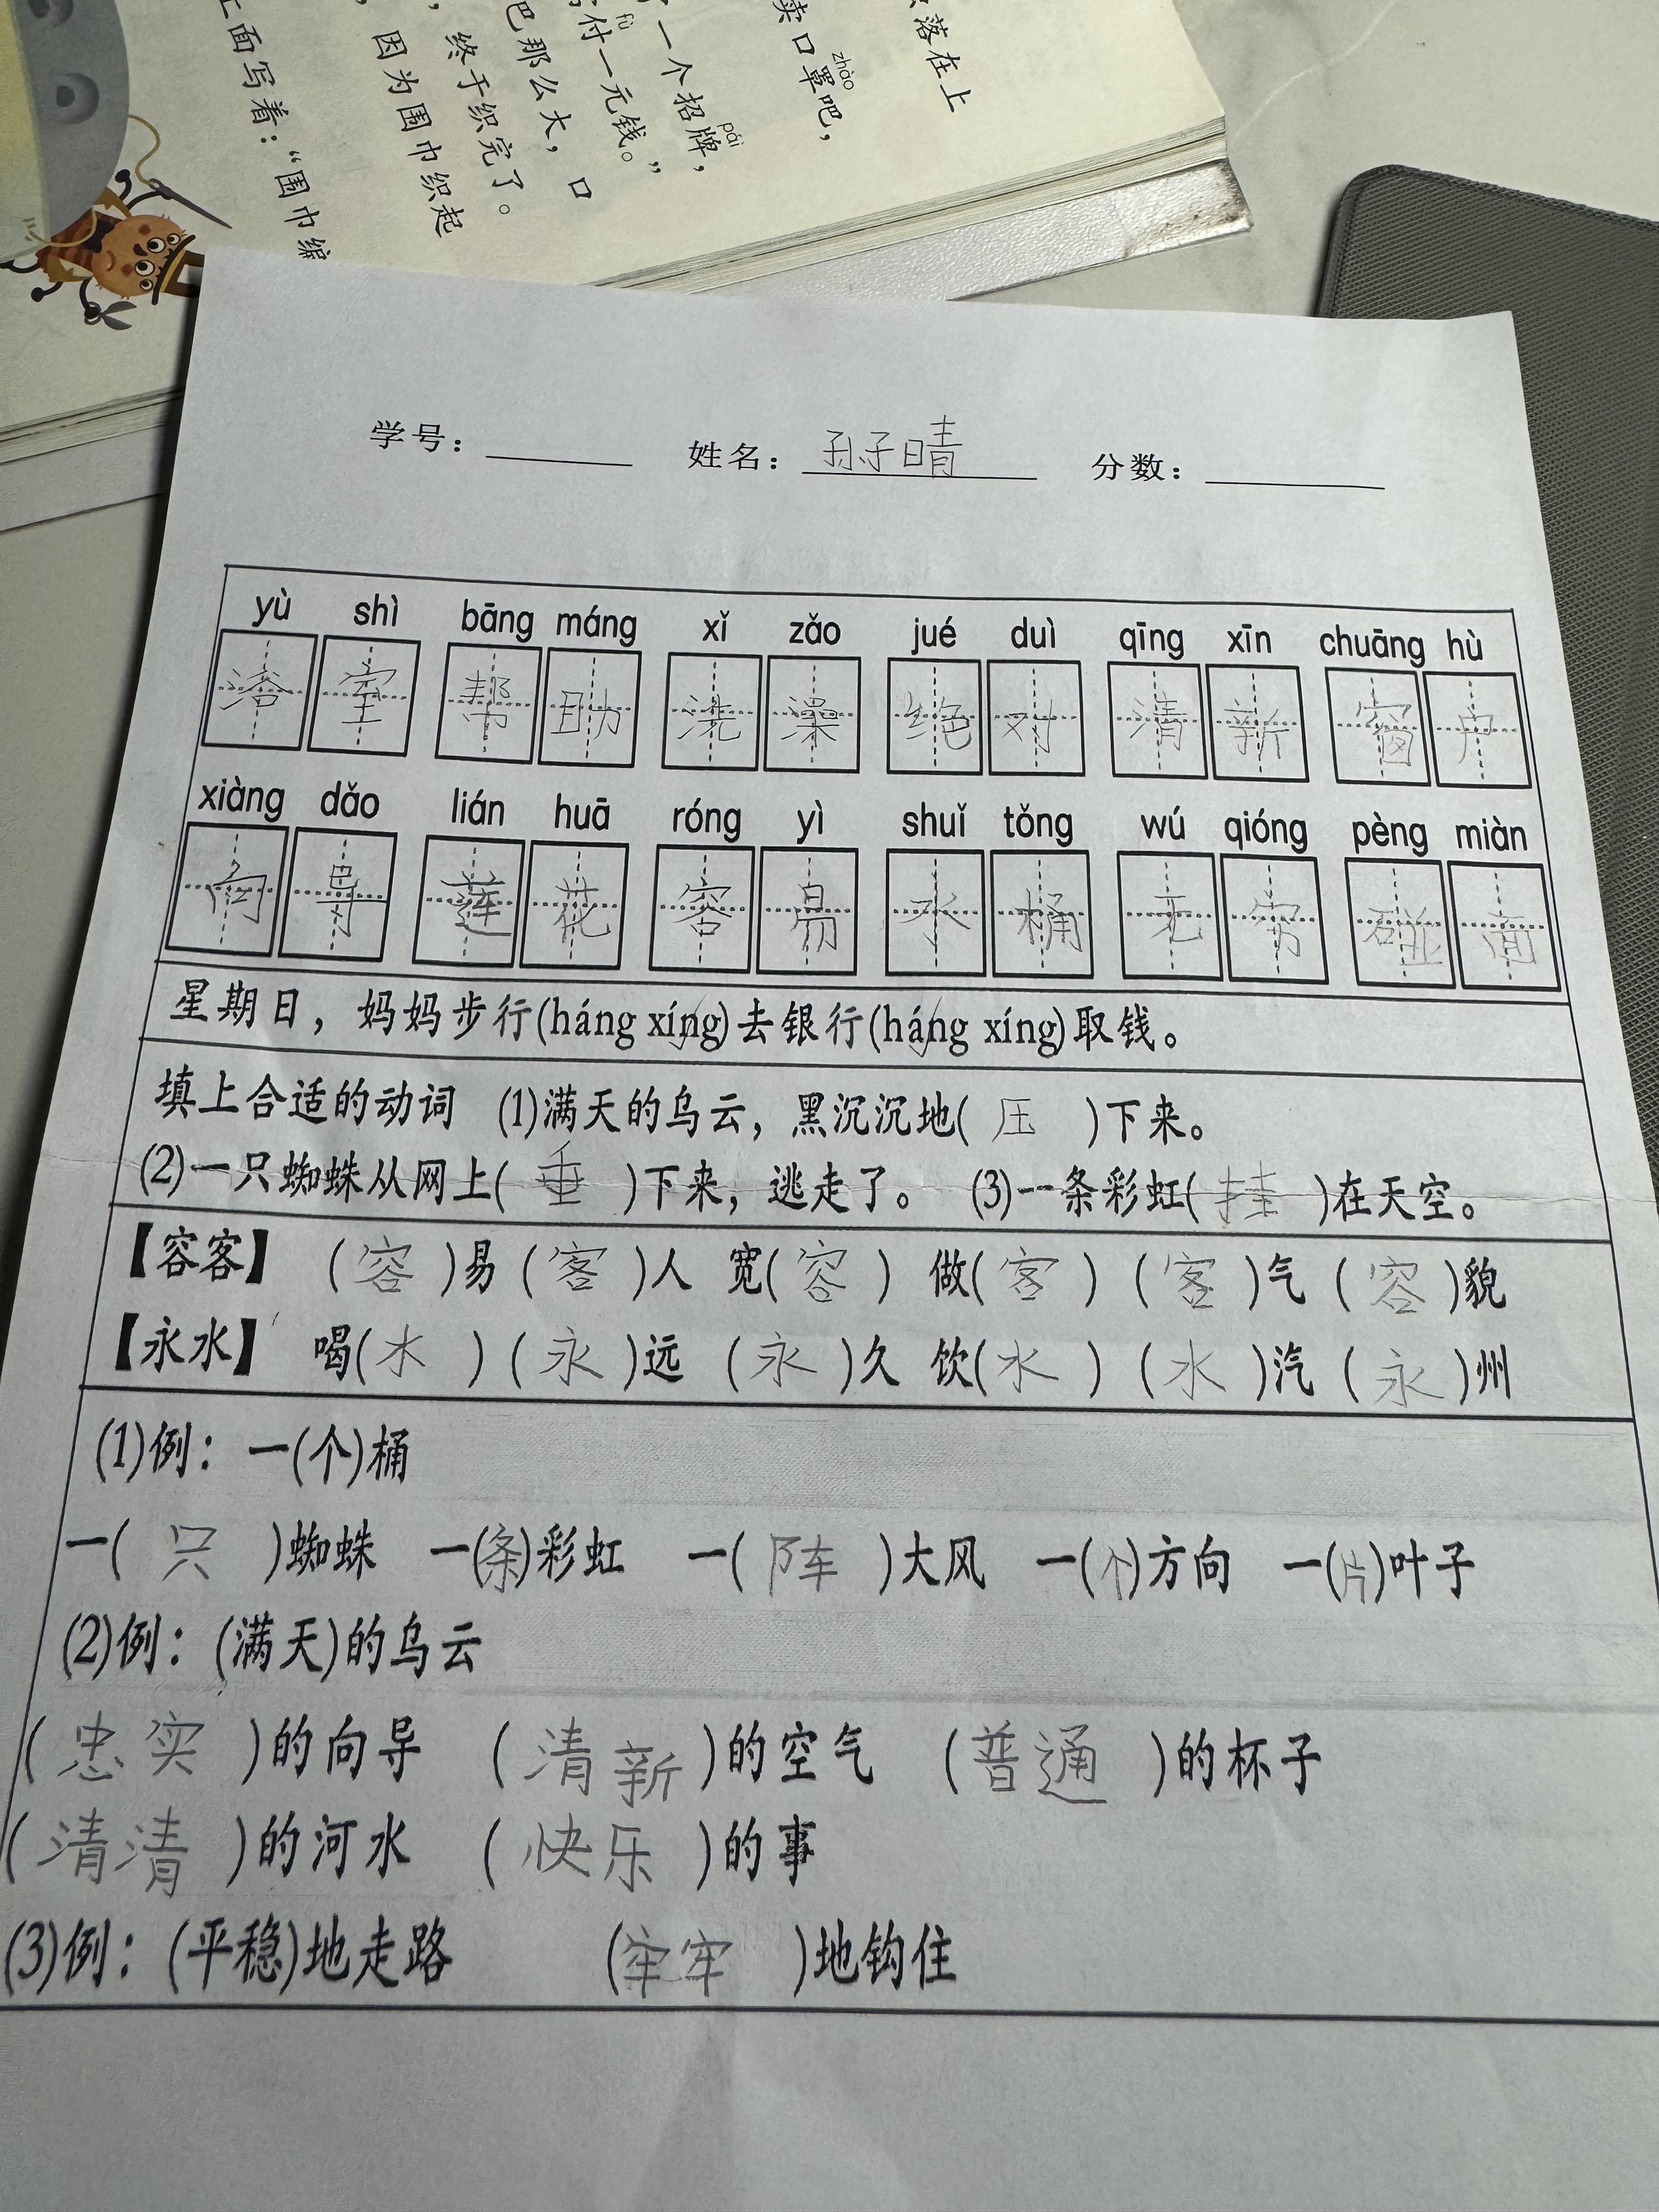 落在上
卖口罩吧，
zhào
了一个招牌，
pái
付一元钱。”
fù
巴那么大，口
终于织完了。
因为围巾织起
上面写着：“围巾编
学号： 姓名：孙子晴 分数：
yù shì bāng máng xǐ zǎo jué duì qīng xīn chuāng hù
浴室 帮助 洗澡 绝对 清新 窗户
xiàng dǎo lián huā róng yì shuǐ tǒng wú qióng pèng miàn
向导 莲花 容易 水桶 无穷 碰面
星期日，妈妈步行(háng xíng)去银行(háng xíng)取钱。
填上合适的动词 (1)满天的乌云，黑沉沉地(压)下来。
(2)一只蜘蛛从网上(垂)下来，逃走了。 (3)一条彩虹(挂)在天空。
【容客】 (容)易 (客)人 宽(容) 做(客) (客)气 (容)貌
【永水】 喝(水) (永)远 (永)久 饮(水) (水)汽 (永)州
(1)例：一(个)桶
一(只)蜘蛛 一(条)彩虹 一(阵)大风 一(个)方向 一(片)叶子
(2)例：(满天)的乌云
(忠实)的向导 (清新)的空气 (普通)的杯子
(清清)的河水 (快乐)的事
(3)例：(平稳)地走路 (牢牢)地钩住